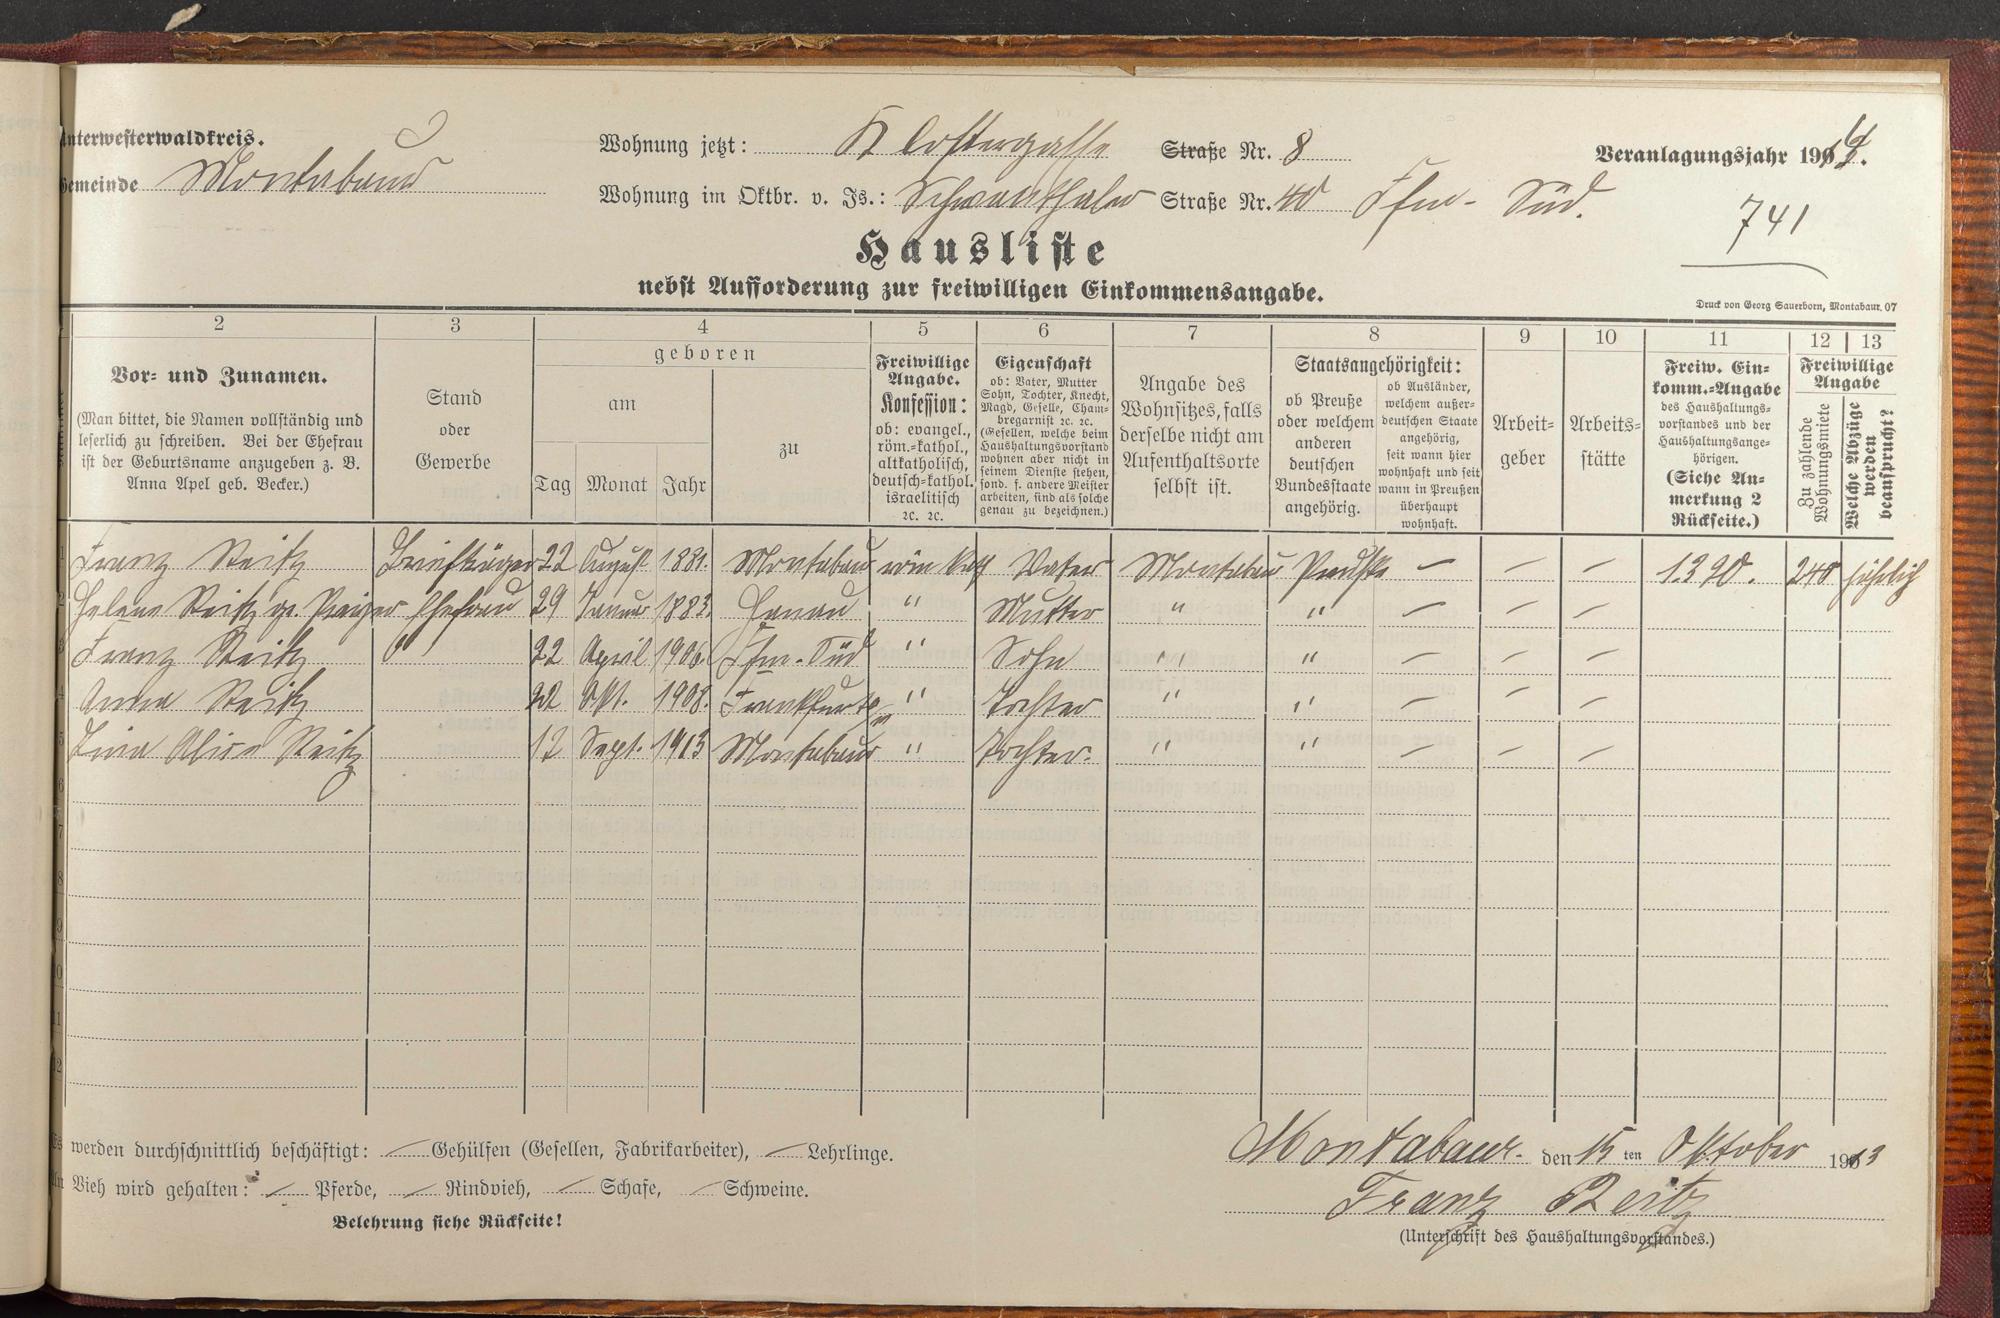 Unterwesterwaldkreis.
Gemeinde Montabaur
Wohnung jetzt: Klostergasse Straße Nr. 8
Wohnung im Oktbr. v. Js.: Schwanthaler Straße Nr. 40 Ffm- Süd.
Veranlagungsjahr 1914.
741
Hausliste
nebst Aufforderung zur freiwilligen Einkommensangabe.
Druck von Georg Sauerborn, Montabaur. 07
2 3 4 5 6 7 8 9 10 11 12 13
Vor- und Zunamen.
(Man bittet, die Namen vollständig und
leserlich zu schreiben. Bei der Ehefrau
ist der Geburtsname anzugeben z. B.
Anna Apel geb. Becker.)
Stand
oder
Gewerbe
geboren
am
Tag Monat Jahr
zu
Freiwillige
Angabe.
Konfession:
ob: evangel.,
röm.-kathol.,
altkatholisch,
deutsch-kathol.
israelitisch
2c. 2c.
Eigenschaft
ob: Vater, Mutter
Sohn, Tochter, Knecht,
Magd, Geselle, Cham-
bregarnist 2c. 2c.
(Gesellen, welche beim
Haushaltungsvorstand
wohnen aber nicht in
seinem Dienste stehen,
sond. f. andere Meister
arbeiten, sind als solche
genau zu bezeichnen.)
Angabe des
Wohnsitzes, falls
derselbe nicht am
Aufenthaltsorte
selbst ist.
Staatsangehörigkeit:
ob Preuße
oder welchem
anderen
deutschen
Bundesstaate
angehörig.
ob Ausländer,
welchem außer-
deutschen Staate
angehörig,
seit wann hier
wohnhaft und seit
wann in Preußen
überhaupt
wohnhaft.
Arbeit-
geber
Arbeits-
stätte
Freiw. Ein-
komm.-Angabe
des Haushaltungs-
vorstandes und der
Haushaltungsange-
hörigen.
(Siehe An-
merkung 2
Rückseite.)
Freiwillige
Angabe
Zu zahlende
Wohnungsmiete
Welche Abzüge
werden
beansprucht?
1 Franz Reitz Briefträger 22 August 1881. Montabaur röm kath Vater Montabaur Preuße — — — 1390. 240 jährlich
2 Helene Reitz ge. Ehefrau 29 Januar 1883 Hanau " Mutter " " — — —
3 Franz Reitz 22 April 1906 Ffm-Süd " Sohn " " — — —
4 Anna Reitz 22 Okt. 1908. Frankfurt a/m " Tochter " " — — —
5 Alice Reitz 12 Sept. 1913 Montabaur " Tochter. " " — — —
6
7
8
9
10
11
12
Es werden durchschnittlich beschäftigt: — Gehülfen (Gesellen, Fabrikarbeiter), — Lehrlinge.
An Vieh wird gehalten: — Pferde, — Rindvieh, — Schafe, — Schweine.
Belehrung siehe Rückseite!
Montabaur. den 15 ten Oktober 1913
Franz Reitz
(Unterschrift des Haushaltungsvorstandes.)